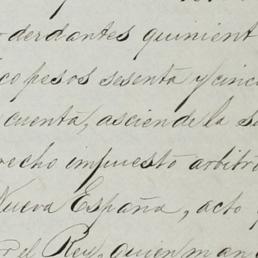 oderdantes quinient
co pesos sesenta y cinc
cuenta, asciende la s
recho impuesto arbitr
Nueva España, acto
or el Rey, quien man